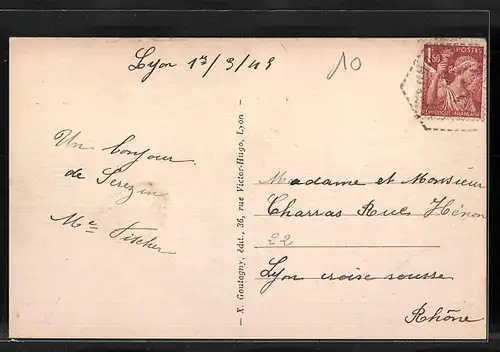 Lyon 17/3/43
10
1F50
POSTES
REPUBLIQUE FRANÇAISE
Un bonjour
de Serezin
Me Fischer
— X. Goutagny, édit., 36, rue Victor-Hugo, Lyon —
Madame et Monsieur
Charras Rue Hénon
22
Lyon croise rousse
Rhône